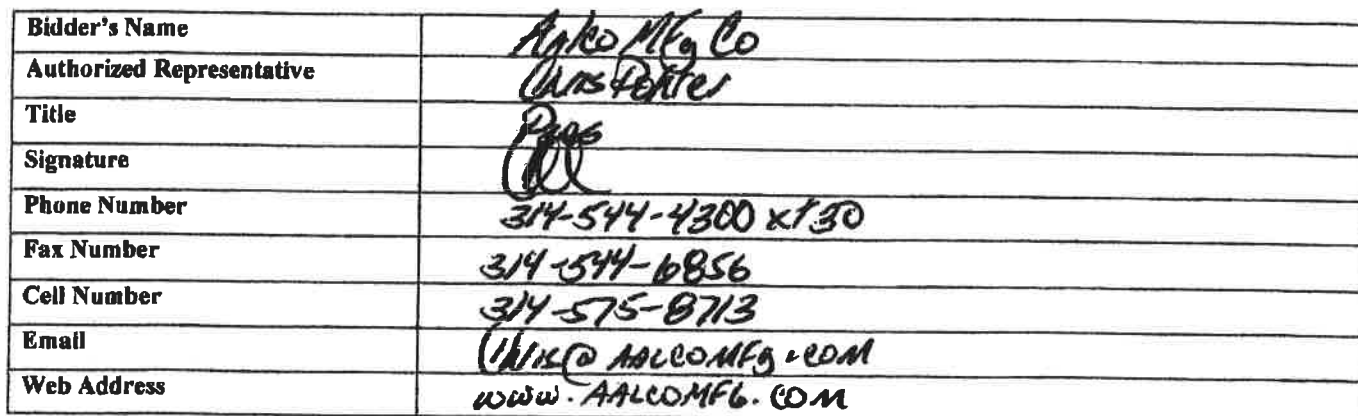 Bidder's Name Aalco Mfg Co
Authorized Representative Chris Porter
Title Pres
Signature
Phone Number 314-544-4300 x130
Fax Number 314-544-6856
Cell Number 314-575-8713
Email Chris@AALCOMFg.COM
Web Address www.AALCOMFG.COM